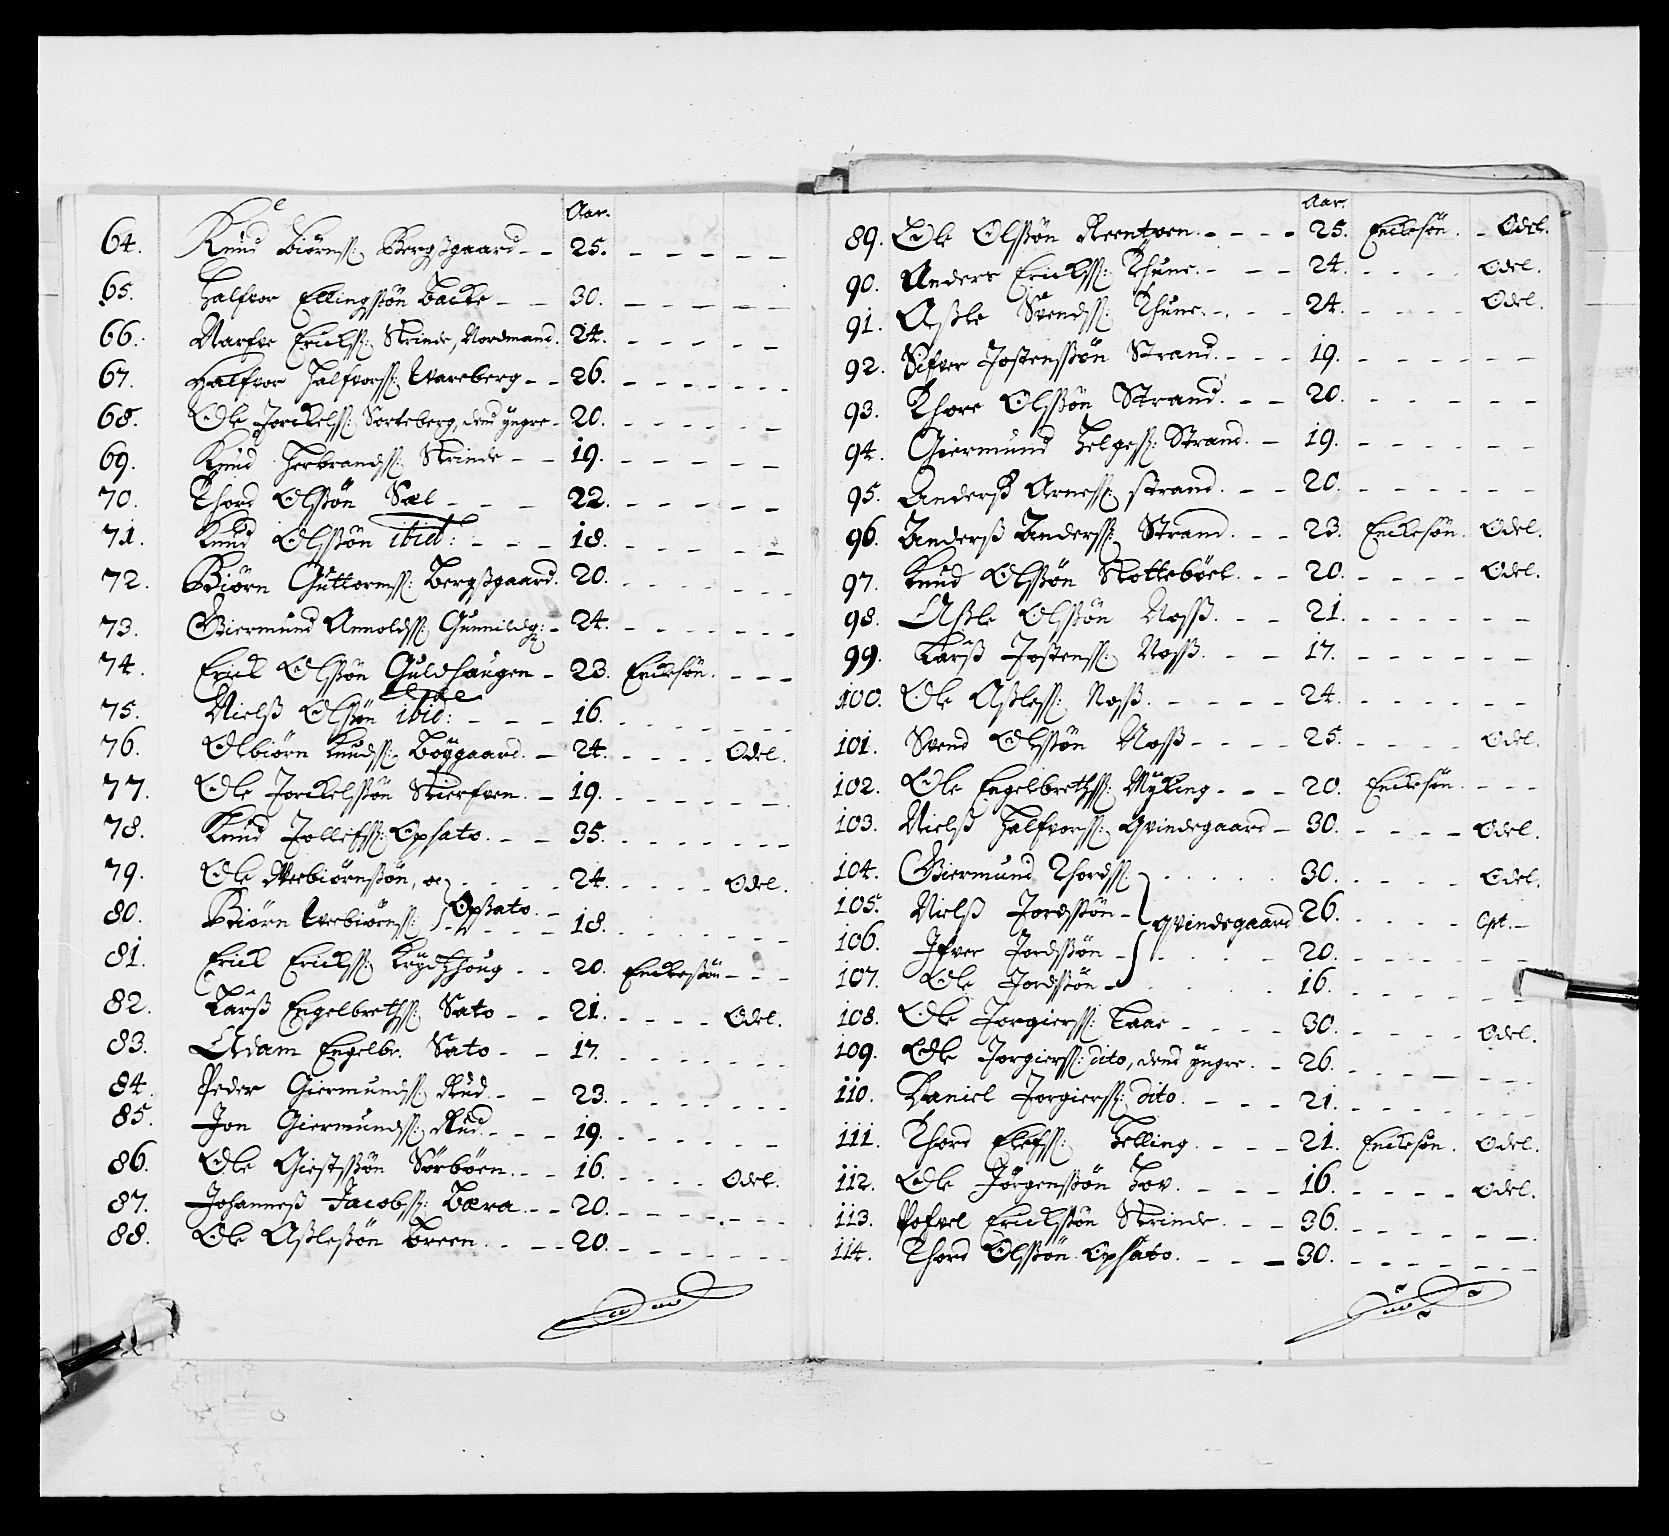 Aar.
64. Knud Biörnss: Bergsgaard 25.
65. Halfvor Ellingssön Backe 30.
66. Narfve Ericksss: Strinde, Nordmand. 24.
67. Halfvor Halfvorss: Wareberg 26.
68. Ole Torckelss: Sorteberg, dend yngre 20.
69. Knud Herbrandss: Strinde 19.
70. Thord Olssön Sæl 22.
71. Knud Olssön ibid: 18.
72. Biörn Guttormss: Bergsgaard. 20.
73. Giermund Arnoldss: Gunnildg: 24.
74. Erick Olssön Guldhaugen 23. Enckesön.
75. Nielss Olssön ibid: 16.
76. Olbiörn Knudss: Böygaard. 24. Odel.
77. Ole Torckelssön Skierfven. 19.
78. Knud Tollefss: Opsato. 35.
79. Ole Werbiörnssön, oc 24. Odel.
80. Biörn Werbiörnss: Opssato. 18.
81. Erick Erickss: Krydtzhoug 20. Enckessön
82. Larss Engelbrethss: Sato 21. Odel.
83. Adam Engelbr. Sato 17.
84. Peder Giermundss: Rud. 23.
85. Jon Giermundss: Rud. 19.
86. Ole Giestssön Sörböen. 16. Odel.
87. Johanness Jacobss: Bæra 20.
88. Ole Asslessön Breen. 20.
Aar.
89. Ole Olssön Reentzen. 25. Enckesön. Odel.
90. Anders Erickss: Thune. 24. Odel.
91. Assle Svendss: Thune. 24. Odel.
92. Sifver Jostenssön Strand. 19.
93. Thore Olssön Strand. 20.
94. Giermund Helgess: Strand. 19.
95. Anderss Arness: strand. 20.
96. Anderss Anderss: Strand. 23. Enckesön. Odel.
97. Knud Olssön Slotteböel. 20. Odel.
98. Assle Olssön Næss. 21.
99. Larss Jostenss: Næss. 17.
100. Ole Assless: Næss. 24.
101. Svend Olssön Næss 25. Odel.
102. Ole Engelbrethss: Myking 20. Enckesön.
103. Nielss Halfvorss: Qvindegaard 30. Odel.
104. Giermund Thordss: 30. Odel.
105. Nielss Tordssön Qvindegaard 26. Cpt.
106. Ifver Tordssön 20.
107. Ole Tordssön 16.
108. Ole Torgierss: Laae 30. Odel.
109. Ole Torgierss: dito, dend yngre. 26.
110. Daniel Torgierss: dito. 21.
111. Thord Elefss: Helling. 21. Enckesön. Odel.
112. Ole Jörgenssön Hov. 16. Odel.
113. Pofvel Erickssön Strinde. 36.
114. Thord Olssön Opsato. 30.